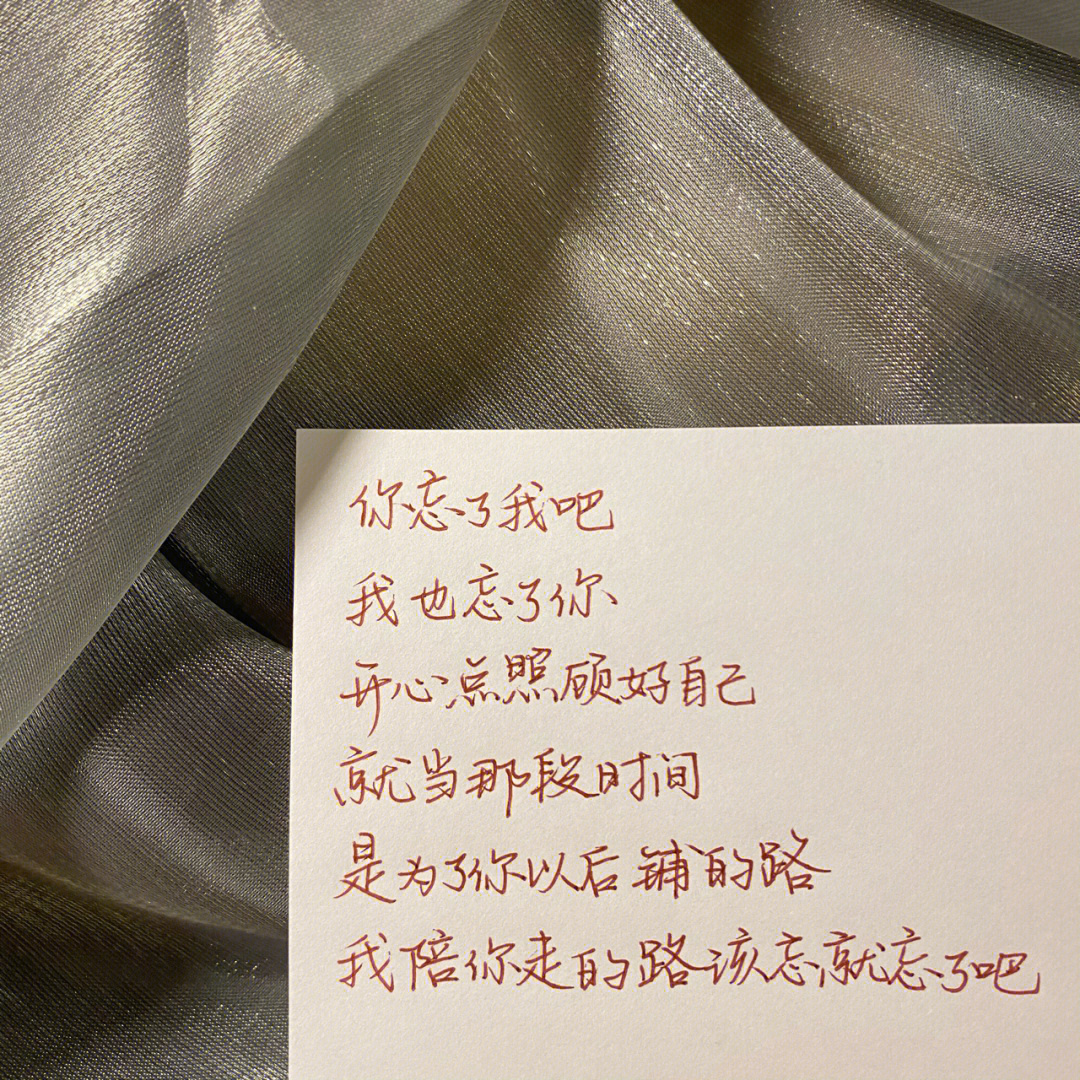 你忘了我吧
我也忘了你
开心点照顾好自己
就当那段时间
是为了你以后铺的路
我陪你走的路该忘就忘了吧